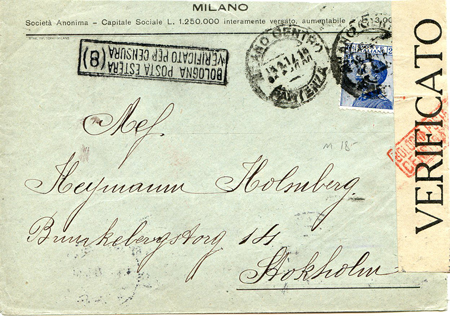 MILANO
Società Anonima - Capitale Sociale L. 1.250.000 interamente versato, aumentabile
BOLOGNA POSTA ESTERA
VERIFICATO PER CENSURA
(8)
MILANO CENTRO
PARTENZA
VERIFICATO
M. 18-
Mef.
Heymann Holmberg
Brunkebergstorg 14
Stokholm